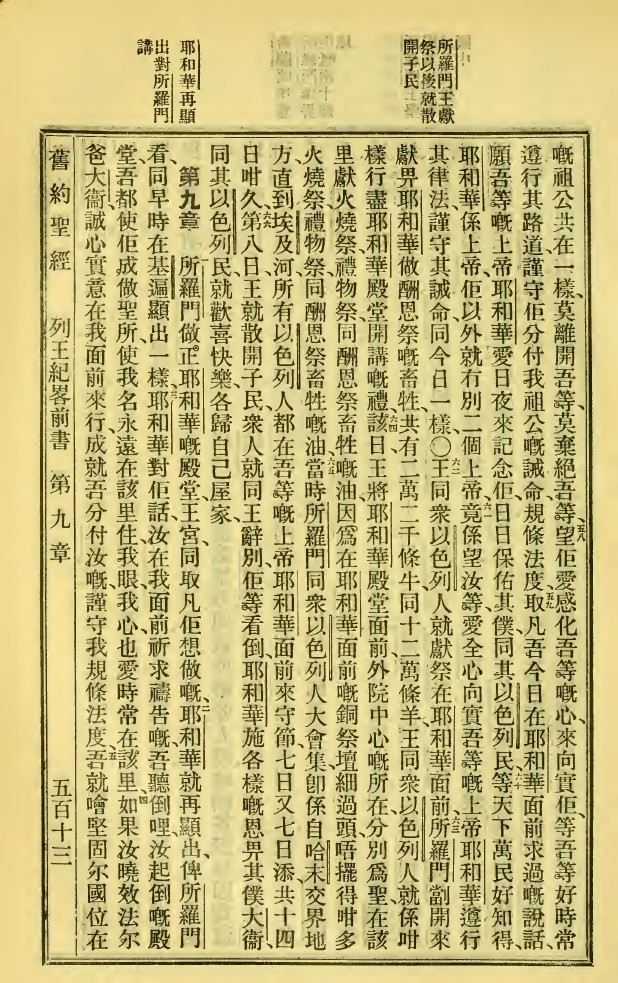 所羅門王獻
祭以後就散
開子民
耶和華再顯
出對所羅門
講
嘅祖公共在一樣、莫離開吾等、莫棄絕吾等、五八望佢愛感化吾等嘅心、來向實佢、等吾等好時常
遵行其路道、謹守佢分付我祖公嘅誡命規條法度、五九取凡吾今日在耶和華面前求過嘅說話、
願吾等嘅上帝耶和華愛日夜來記念佢、日日保佑其僕同其以色列民、六十等天下萬民好知得、
耶和華係上帝、佢以外就冇別二個上帝、六一竟係望汝等愛全心向實吾等嘅上帝耶和華、遵行
其律法、謹守其誡命、同今日一樣、〇六二王同衆以色列人就獻祭在耶和華面前、六三所羅門劏開來
獻畀耶和華做酬恩祭嘅畜牲、共有二萬二千條牛、同十二萬條羊、王同衆以色列人就係咁
樣行盡耶和華殿堂開講嘅禮、六四該日王將耶和華殿堂面前外院中心嘅所在分別爲聖、在該
里獻火燒祭、禮物祭、同酬恩祭畜牲嘅油、因爲在耶和華面前嘅銅祭壇細過頭、唔擺得咁多
火燒祭、禮物祭、同酬恩祭畜牲嘅油、六五當時所羅門同衆以色列人大會集、卽係自哈末交界地
方直到埃及河所有以色列人、都在吾等嘅上帝耶和華面前來守節、七日又七日添、共十四
日咁久、六六第八日王就散開子民、衆人就同王辭別、佢等看倒耶和華施各樣嘅恩畀其僕大衞
同其以色列民、就歡喜快樂各歸自己屋家、
第九章 一所羅門做正耶和華嘅殿堂、王宮、同取凡佢想做嘅、二耶和華就再顯出俾所羅門
看、同早時在基遍顯出一樣、三耶和華對佢話、汝在我面前祈求禱告嘅、吾聽倒哩、汝起倒嘅殿
堂、吾都使佢成做聖所、使我名永遠在該里住、我眼我心也愛時常在該里、四如果汝曉效法尔
爸大衞誠心實意在我面前來行、成就吾分付汝嘅、謹守我規條法度、五吾就噲堅固尔國位在
舊約聖經 列王紀畧前書 第九章 五百十三